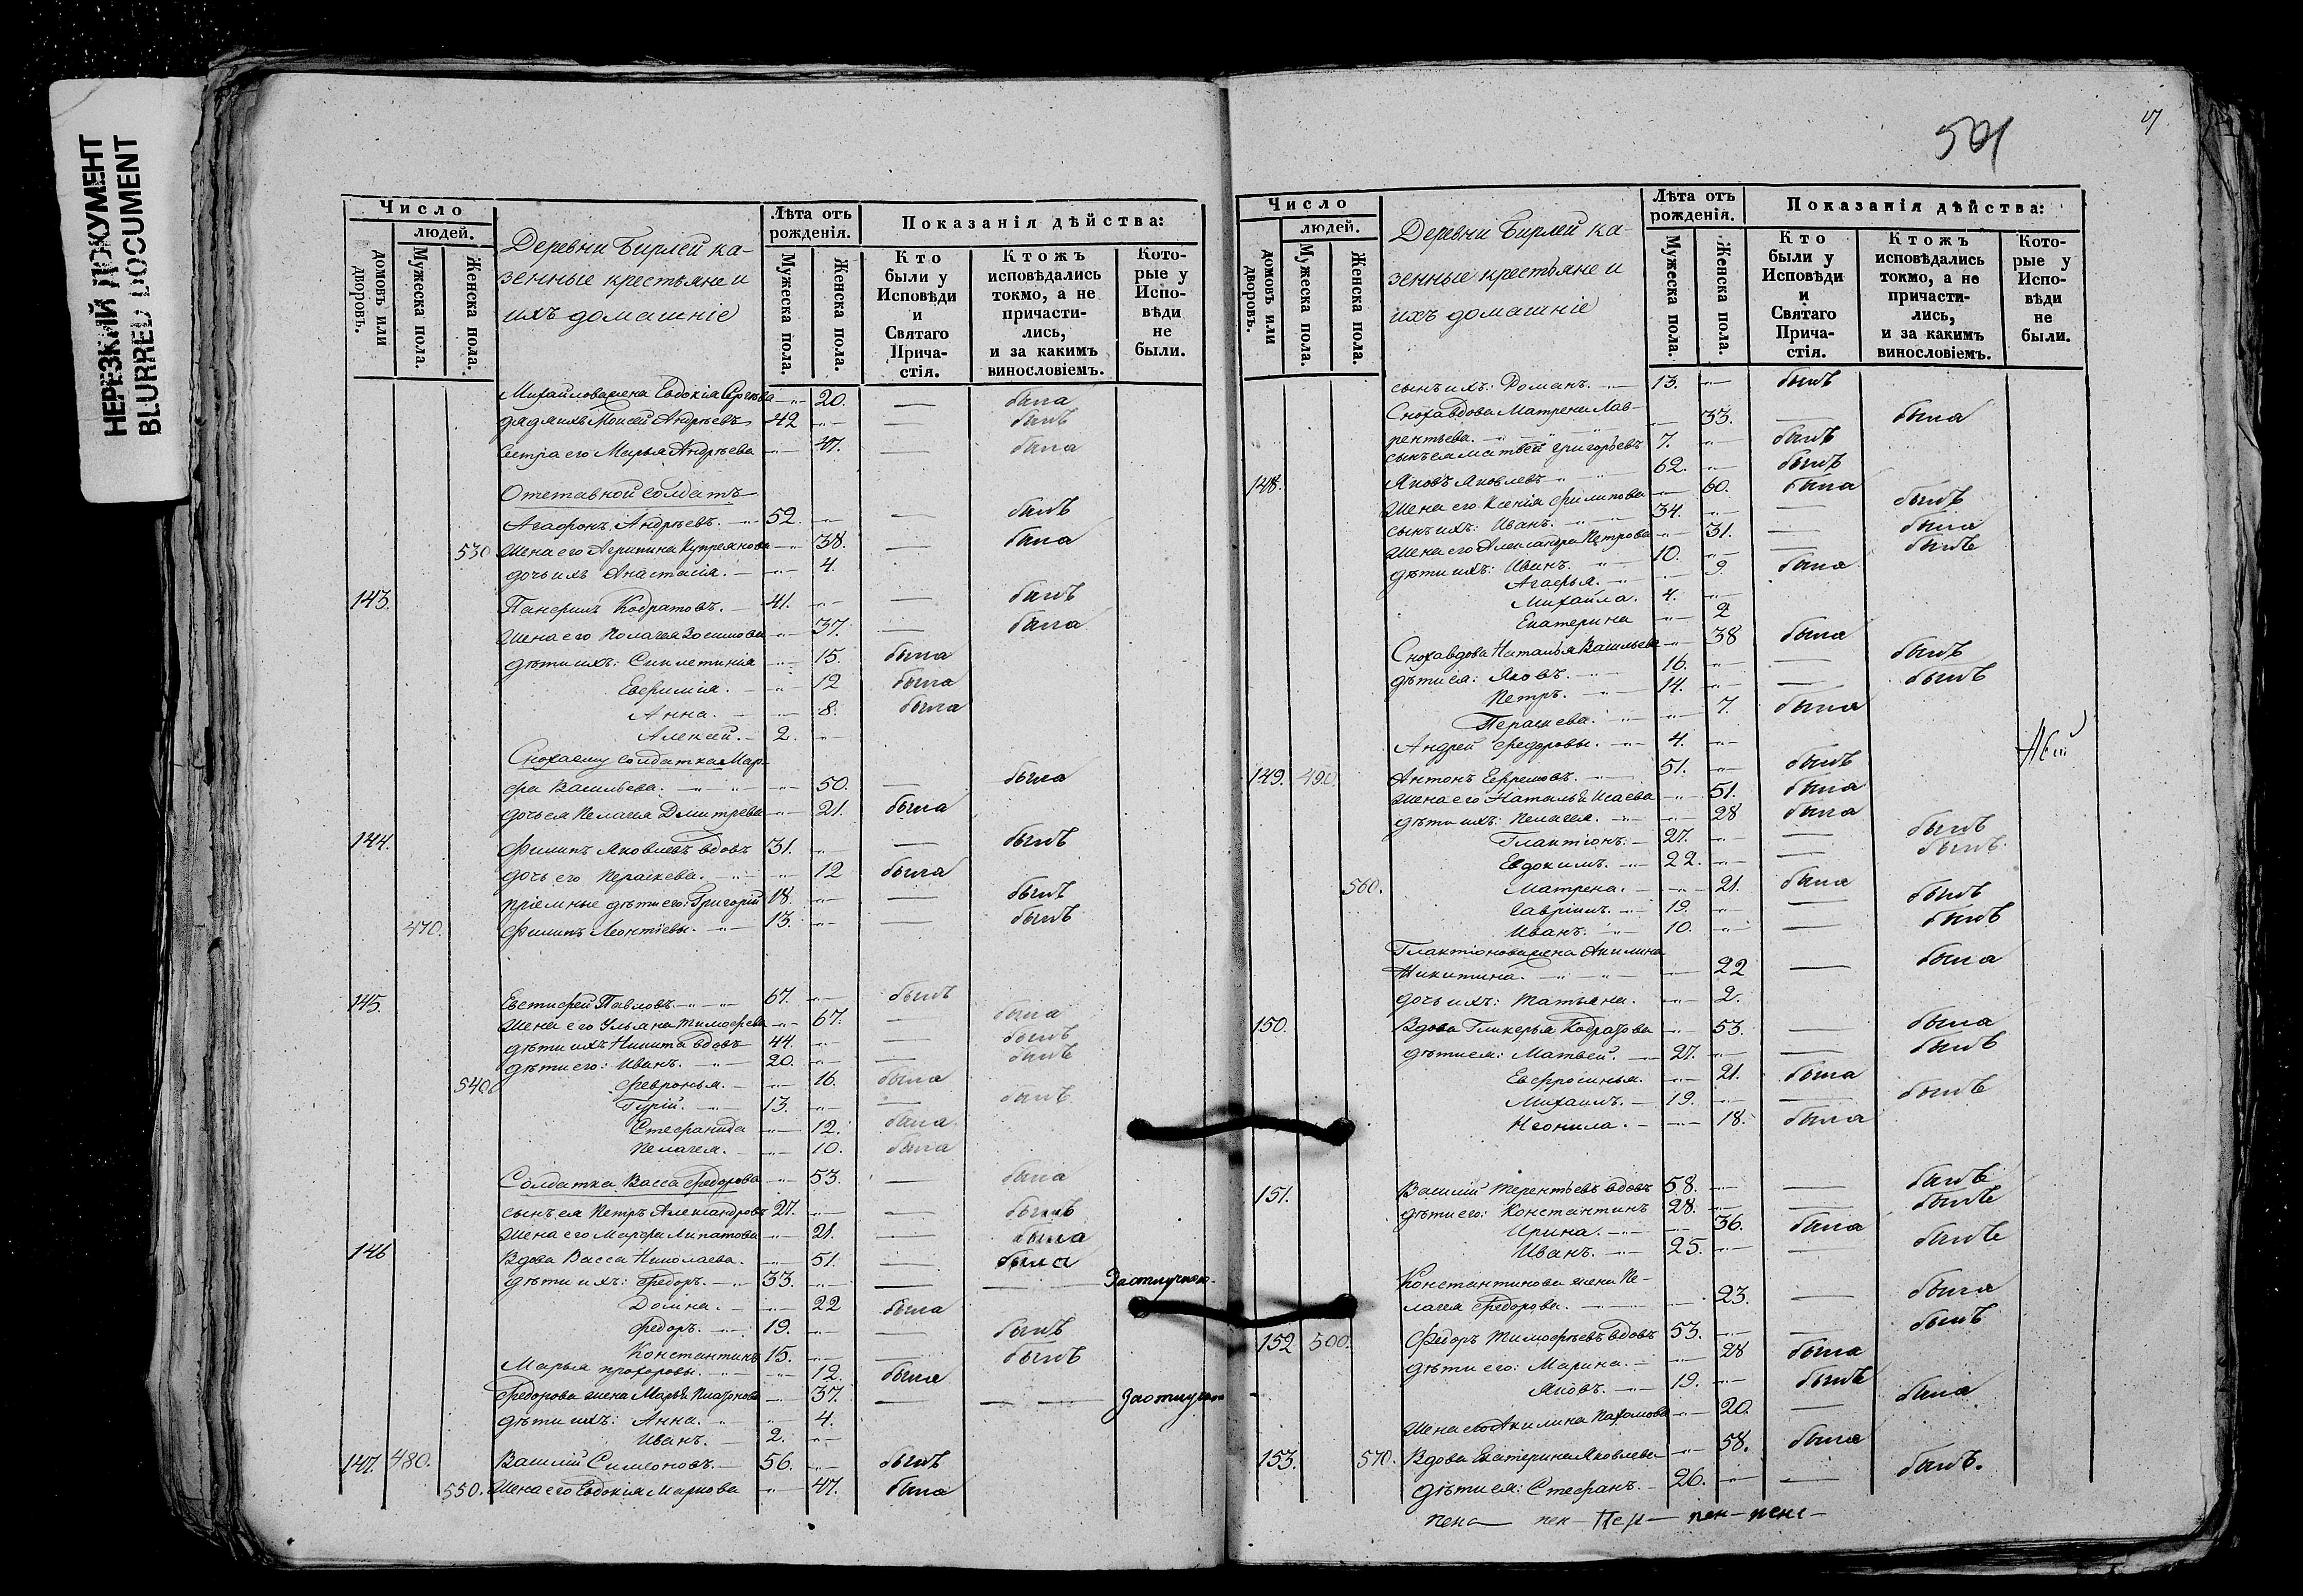 НЕРЕЗКИЙ ДОКУМЕНТ
BLURRED DOCUMENT
Число
людей.
домовъ или дворовъ.
Мужеска пола.
Женска пола.
Деревни Бирлей ка-
зенные крестьяне и
ихъ домашніе
Лѣта отъ рожденія.
Мужеска пола.
Женска пола.
Показанія дѣйства:
Кто были у Исповѣди и Святаго Прича-стія.
Ктожъ исповѣдались токмо, а не причасти-лись, и за какимъ винословіемъ.
Кото-рые у Испо-вѣди не были.
Михайлова жена Евдокія Сергѣева 20. была
дядя ихъ Моисей Андрѣевъ 42 былъ
Сестра его Марья Андрѣева 47. была
Отставной солдатъ
Агафонъ Андрѣевъ. 52. былъ
530 Жена его Агрипина Купреянова 38. была
дочь ихъ Анастасія. 4.
143. Панфилъ Кодратовъ. 41. былъ
Жена его Полагея Зосимова 37. была
дѣти ихъ: Синклетикія 15. была
Евфимія. 12 была
Анна. 8. была
Алексей. 2.
Сноха ему солдатка Мар-
фа Васильева. 50. была
дочь ея Пелагея Дмитрева 21. была
144. Филипъ Яковлевъ вдовъ 31. былъ
дочь его Параскева. 12 была
пріемные дѣти его: Григорій 18. былъ
470. Филипъ Леонтіевы. 13. былъ
145. Евстифей Павловъ. 67. былъ
Жена его Ульяна Тимофеева 67. была
дѣти ихъ Никита вдовъ 44. былъ
дѣти его: Иванъ. 20. былъ
540. Февронья. 16. была
Гурій. 13. былъ
Стефанида 12. была
Пелагея. 10. была
Солдатка Васса Федорова 53. была
сынъ ея Петръ Александровъ 27. былъ
Жена его Марфа Липатова 21. была
146 Вдова Васса Николаева. 51. была
дѣти ихъ: Федоръ. 33.
Домна. 22 была
Федоръ. 19. былъ
Константинъ 15. былъ
Марья Прохоровы. 12. была
Федорова жена Марья Платонова 37.
дѣти ихъ: Анна. 4.
Иванъ. 2.
147. 480. Василій Симеоновъ. 56. былъ
550. Жена его Евдокія Маркова 47. была
501
Число
людей.
домовъ или дворовъ.
Мужеска пола.
Женска пола.
Деревни Бирлей ка-
зенные крестьяне и
ихъ домашніе
Лѣта отъ рожденія.
Мужеска пола.
Женска пола.
Показанія дѣйства:
Кто были у Исповѣди и Святаго Прича-стія.
Ктожъ исповѣдались токмо, а не причасти-лись, и за какимъ винословіемъ.
Кото-рые у Испо-вѣди не были.
сынъ ихъ: Романъ. 13. былъ
Сноха вдова Матрена Лав-
рентьева. 33. была
сынъ ея Матвей Григорьевъ 7. былъ
148. Яковъ Яковлевъ 62. былъ
Жена его Ксенія Филипова 60. была
сынъ ихъ: Иванъ. 34. былъ
Жена его Александра Петрова 31. была
дѣти ихъ: Иванъ. 10. былъ
Агафья. 9. была
Михайла. 4.
Екатерина 2
Сноха вдова Наталья Васильева 38 была
дѣти ея: Яковъ. 16. былъ
Петръ. 14. былъ
Параскева. 7. была
Андрей Федоровы. 4.
149. 490. Антонъ Ефремовъ. 51. былъ
Жена его Наталья Исаева 51. была
дѣти ихъ: Пелагея. 28 была
Глактіонъ. 27. былъ
Евдокимъ. 22. былъ
560. Матрена. 21. была
Гавріилъ. 19. былъ
Иванъ. 10. былъ
Глактіонова жена Акилина
Никитина. 22 была
дочь ихъ: Татьяна. 2.
150. Вдова Гликерья Кодратова 53. была
дѣти ея: Матвей. 27. былъ
Евфросинья. 21. была
Михаилъ. 19. былъ
Неонила. 18. была
151. Василій Терентьевъ вдовъ 58. былъ
дѣти его: Константинъ 28. былъ
Ирина. 36. была
Иванъ. 25. былъ
Константинова жена Пе-
лагея Федорова. 23. была
152 500. Федоръ Тимофѣевъ вдовъ 53. былъ
дѣти его: Марина. 28 была
Яковъ. 19. былъ
Жена его Акилина Пахомова 20. была
153. 570. Вдова Екатерина Яковлева 58. была
дѣти ея: Стефанъ. 26. былъ.